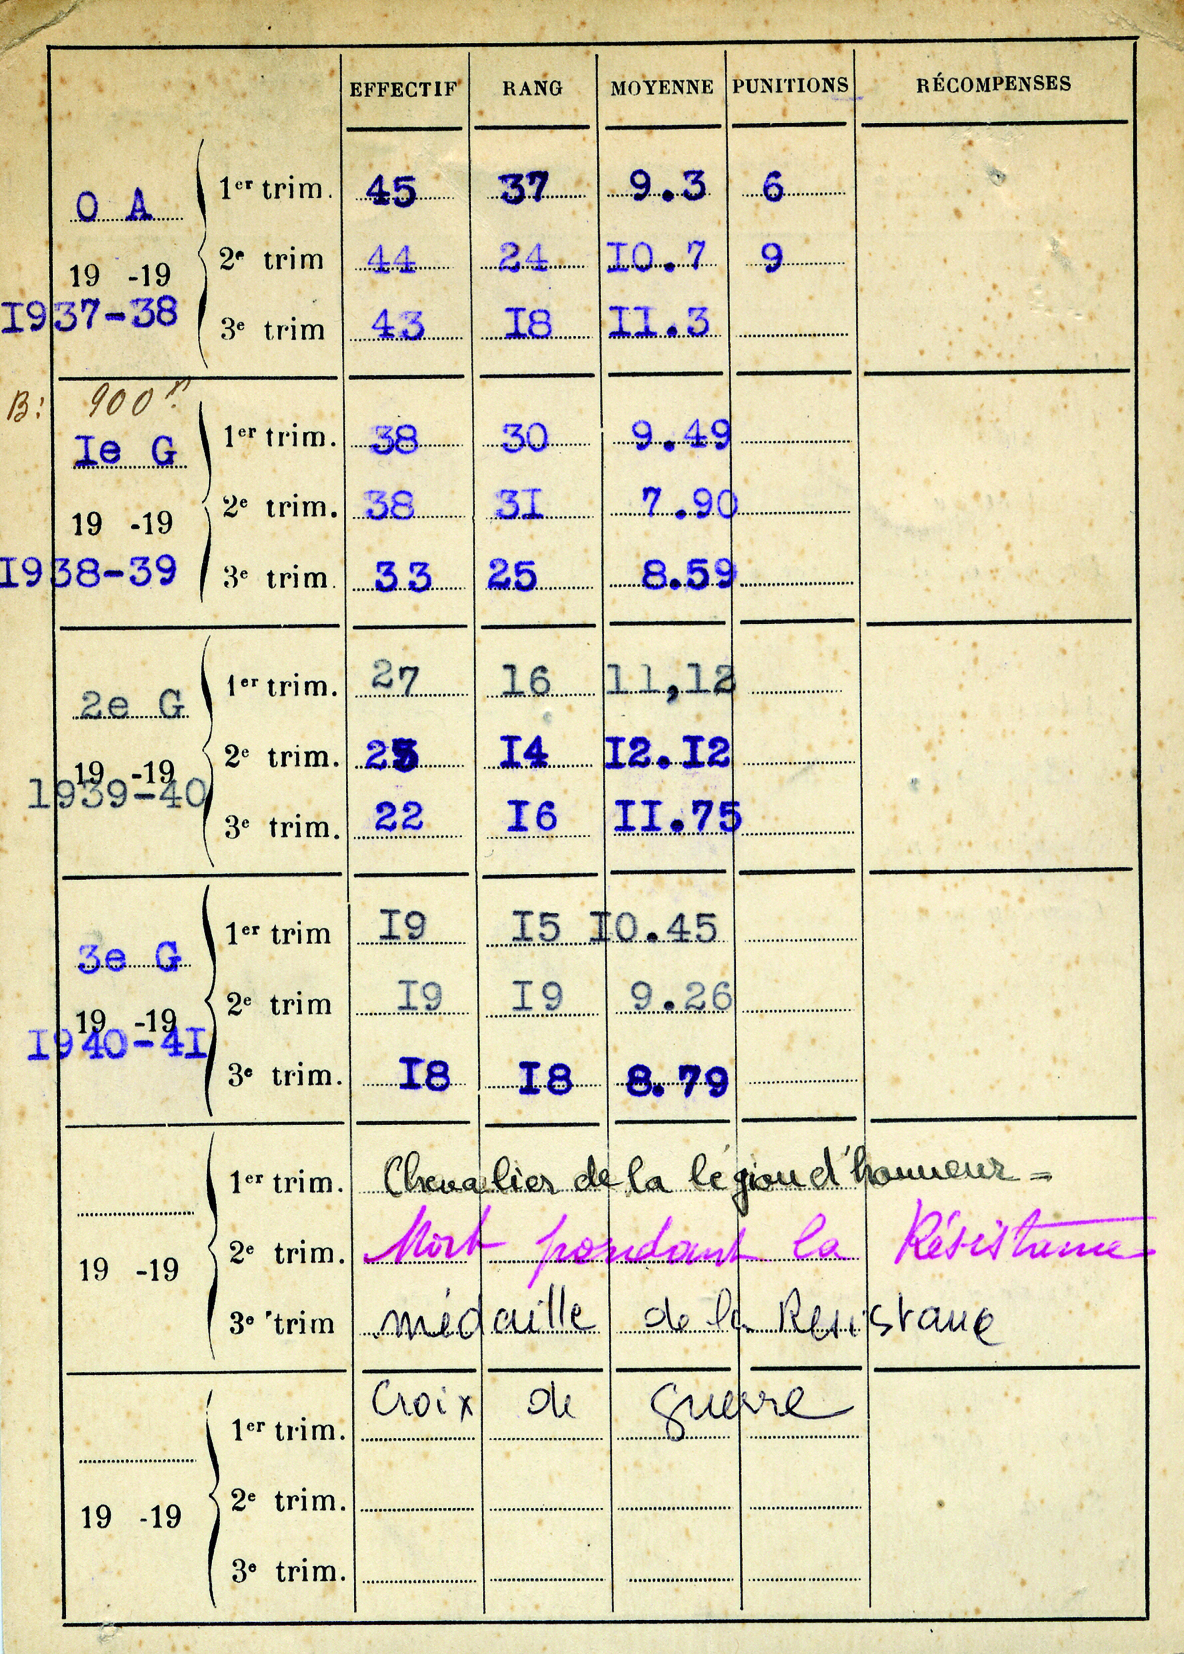 EFFECTIF RANG MOYENNE PUNITIONS RÉCOMPENSES
1er trim. 45 37 9.3 6
O A
2e trim 44 24 I0.7 9
19 -19
I937-38
3e trim 43 I8 II.3
B: 900
1er trim. 38 30 9.49
Ie G
2e trim. 38 3I 7.90
19 -19
I938-39
3e trim. 33 25 8.59
1er trim. 27 16 11,12
2e G
2e trim. I4 I2.I2
19 -19
1939-40
3e trim. 22 I6 II.75
1er trim I9 I5 I0.45
3e G
2e trim I9 I9 9.26
19 -19
I940-4I
3e trim. I8 I8 8.79
1er trim. Chevalier de la légion d'honneur =
2e trim. Mort pendant la Résistance
19 -19
3e trim médaille de la Résistance
Croix de guerre
1er trim.
2e trim.
19 -19
3e trim.